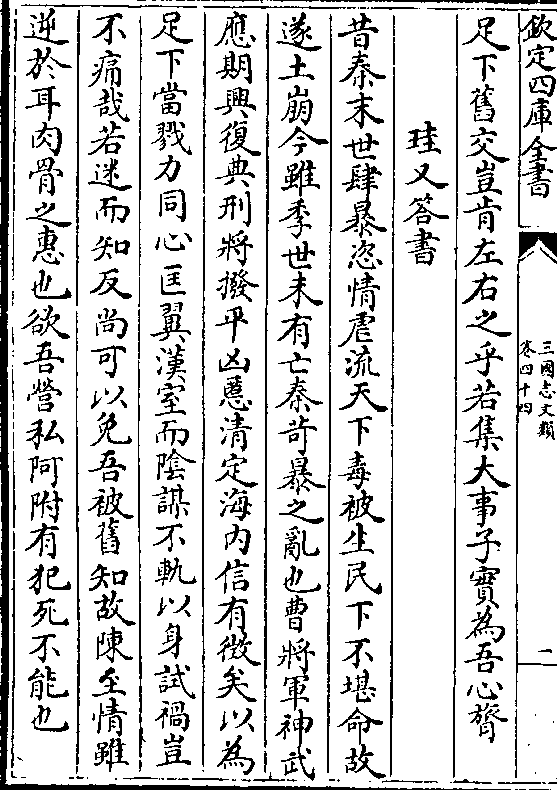 欽定四庫全書
三國志文類
卷四十四
一
足下舊交豈肯左右之乎若集大事子實為吾心膂
珪又答書
昔秦末世肆暴恣情虐流天下毒被生民下不堪命故
遂土崩今雖季世未有亡秦苛暴之亂也曹將軍神武
應期興復典刑將撥平凶慝清定海內信有徴矣以為
足下當戮力同心匡翼漢室而陰謀不軌以身試禍豈
不痛哉若迷而知反尚可以免吾被舊知故陳至情雖
逆於耳肉骨之惠也欲吾營私阿附有犯死不能也